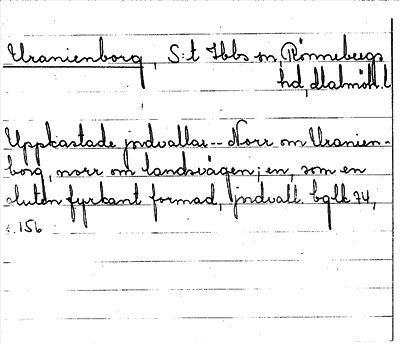 Uranienborg, S:t Ibbs sn, Rönnebergs
hd, Malmöh. l
Uppkastade jordvallar -- Norr om Uranien-
borg, norr om landsvägen; en, som en
sluten fyrkant formad, jordvall. bglk 74,
s. 156